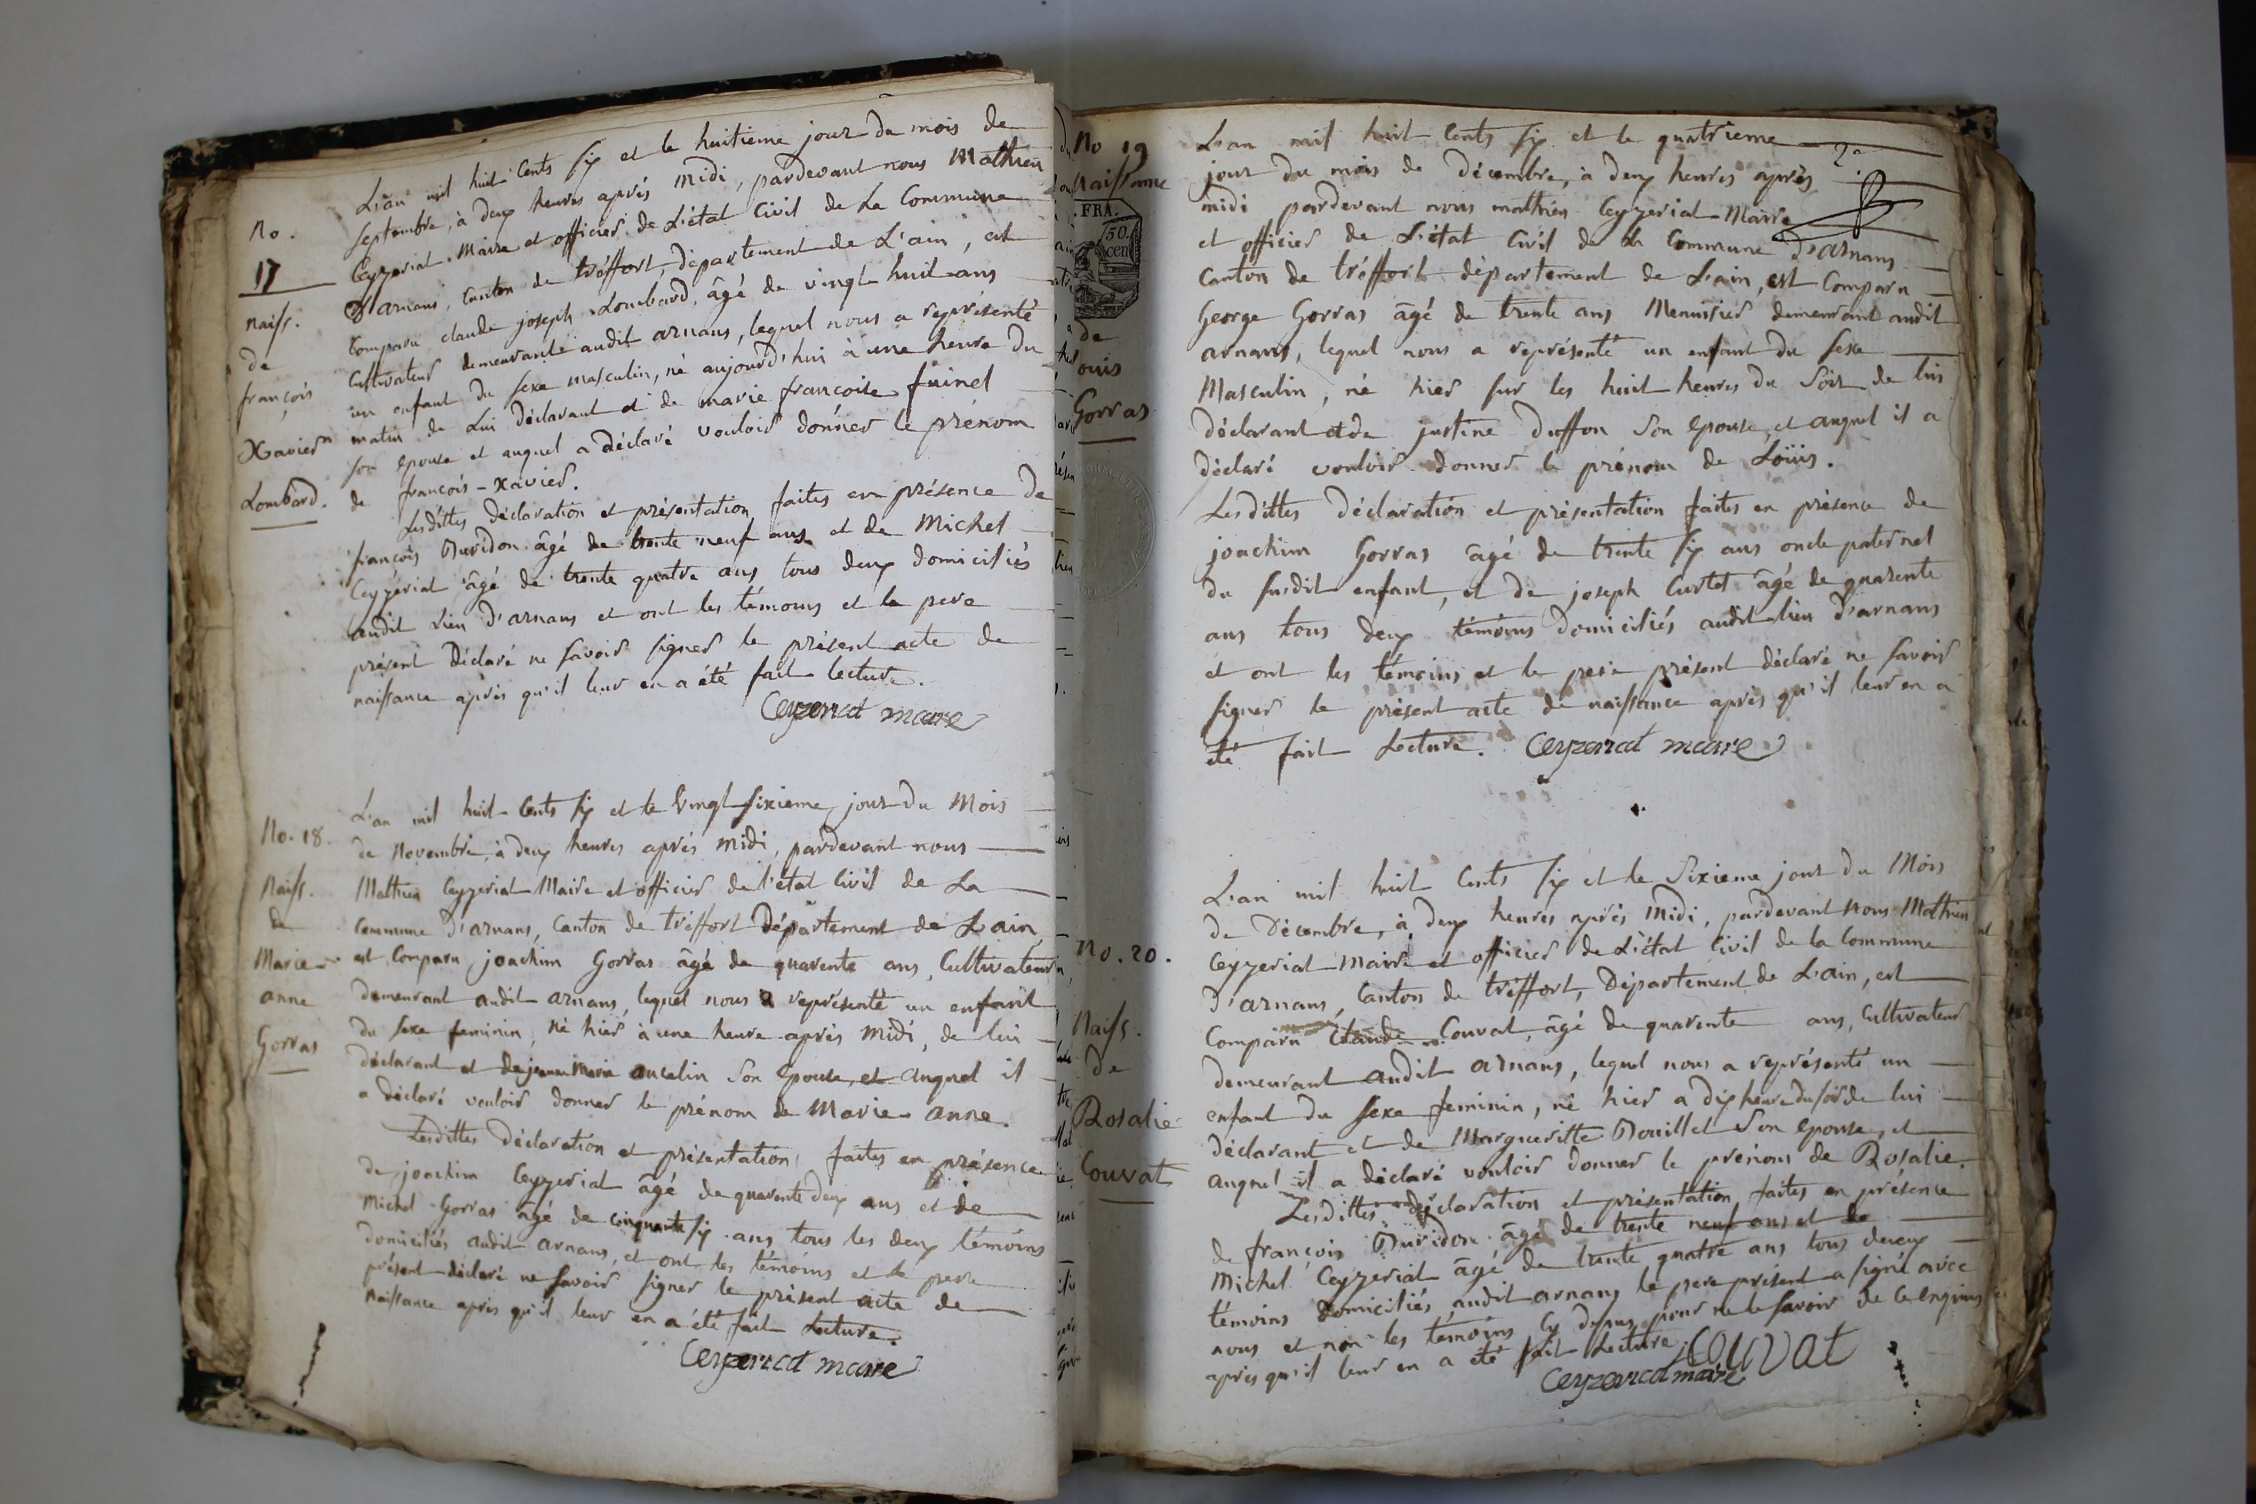 No.
17
naiss.
de
françois
Xavier
Lombard.
L'an mil huit Cents six et le huitieme jour du mois de
septembre, à deux heures après midi, pardevant nous Mathieu
Ceyzeriat Maire et officier de L'état Civil de La Commune
d'arnans, Canton de tréffort, département de L'ain, est
Comparu claude joseph Lombard, âgé de vingt huit ans
Cultivateur demeurant audit arnans, lequel nous a représenté
un enfant du sexe masculin, né aujourd'hui à une heure du
matin de Lui Déclarant et de marie françoise
son épouse et auquel a déclaré vouloir donner le prénom
de françois-xavier.
Lesdittes Déclaration et présentation faites en présence de
françois Buridon âgé de trente neuf ans et de Michel
Ceyzériat âgé de trente quatre ans, tous deux domiciliés
audit Lieu d'arnans et ont les témoins et le pere
présent Déclaré ne savoir signer le présent acte de
naissance après qu'il leur en a été fait lecture.
Ceyzeriat maire
No. 18.
Naiss.
de
Marie
anne
Gorras
L'an mil huit Cents six et le Vingt sixieme jour du Mois
de Novembre, à deux heures après midi, pardevant nous
Mathieu Ceyzeriat Maire et officier de l'état Civil de La
Commune d'arnans, Canton de tréffort Département de L'ain,
est Comparu joachim Gorras âgé de quarente ans, Cultivateur
demeurant audit arnans, lequel nous a représenté un enfant
du sexe feminin, né hier à une heure après midi, de lui
déclarant et de jeanne Marie ancelin Son Epouse, et auquel il
a déclaré vouloir donner le prénom de Marie-anne.
Lesdittes Déclaration et présentation faites en présence
de joachim Ceyzeriat âgé de quarente deux ans et de
Michel Gorras âgé de Cinquante six ans, tous les deux témoins
domiciliés audit arnans, et ont les témoins et le pere
présent déclaré ne savoir signer le présent acte de
naissance après qu'il leur en a été fait Lecture.
Ceyzeriat maire
No 19
Naissance
FRA.
50.
cen
de
Louis
Gorras
2e
L'an mil huit Cents six et le quatrieme
jour du mois de Décembre, à deux heures après
midi pardevant nous mathieu Ceyzeriat Maire
et officier de L'état Civil de la Commune d'arnans
Canton de tréffort département de L'ain, est Comparu
George Gorras âgé de trente ans Menuisier demeurant audit
arnans, lequel nous a représenté un enfant du sexe
Masculin, né hier sur les huit heures du Soir de lui
Déclarant et de justine Duffon Son Epouse, et auquel il a
déclaré vouloir donner le prénom de Loüis.
Lesdittes Déclaration et présentation faites en présence de
joachim Gorras âgé de trente six ans oncle paternel
du susdit enfant, et de joseph Curtet âgé de quarente
ans tous deux témoins Domiciliés audit lieu d'arnans
et ont les témoins et le pere présent déclaré ne savoir
signer le présent acte de naissance après qu'il leur en a
été fait Lecture. Ceyzeriat maire
No. 20.
Naiss.
de
Rosalie
Couvat
L'an mil huit Cents six et le Sixieme jour du Mois
de Décembre, à deux heures après midi, pardevant nous Mathieu
Ceyzeriat Maire et officier de L'état Civil de la Commune
d'arnans, Canton de tréffort, Département de L'ain, est
Comparu Claude Couvat, âgé de quarente ans, Cultivateur
demeurant audit arnans, lequel nous a représenté un
enfant du sexe feminin, né hier a dix heure du soir de lui
déclarant et de Margueritte Bouillet Son épouse, et
auquel il a déclaré vouloir donner le prénom de Rosalie.
Lesdittes déclaration et présentation faites en présence
de françois Buridon âgé de trente neuf ans et de
Michel Ceyzeriat âgé de trente quatre ans tous deux
témoins domiciliés audit arnans le pere présent a signé avec
nous et non les témoins Cy dessus pour ne le savoir de Ce enquis
après qu'il leur en a été fait Lecture. Couvat
Ceyzeriat maire